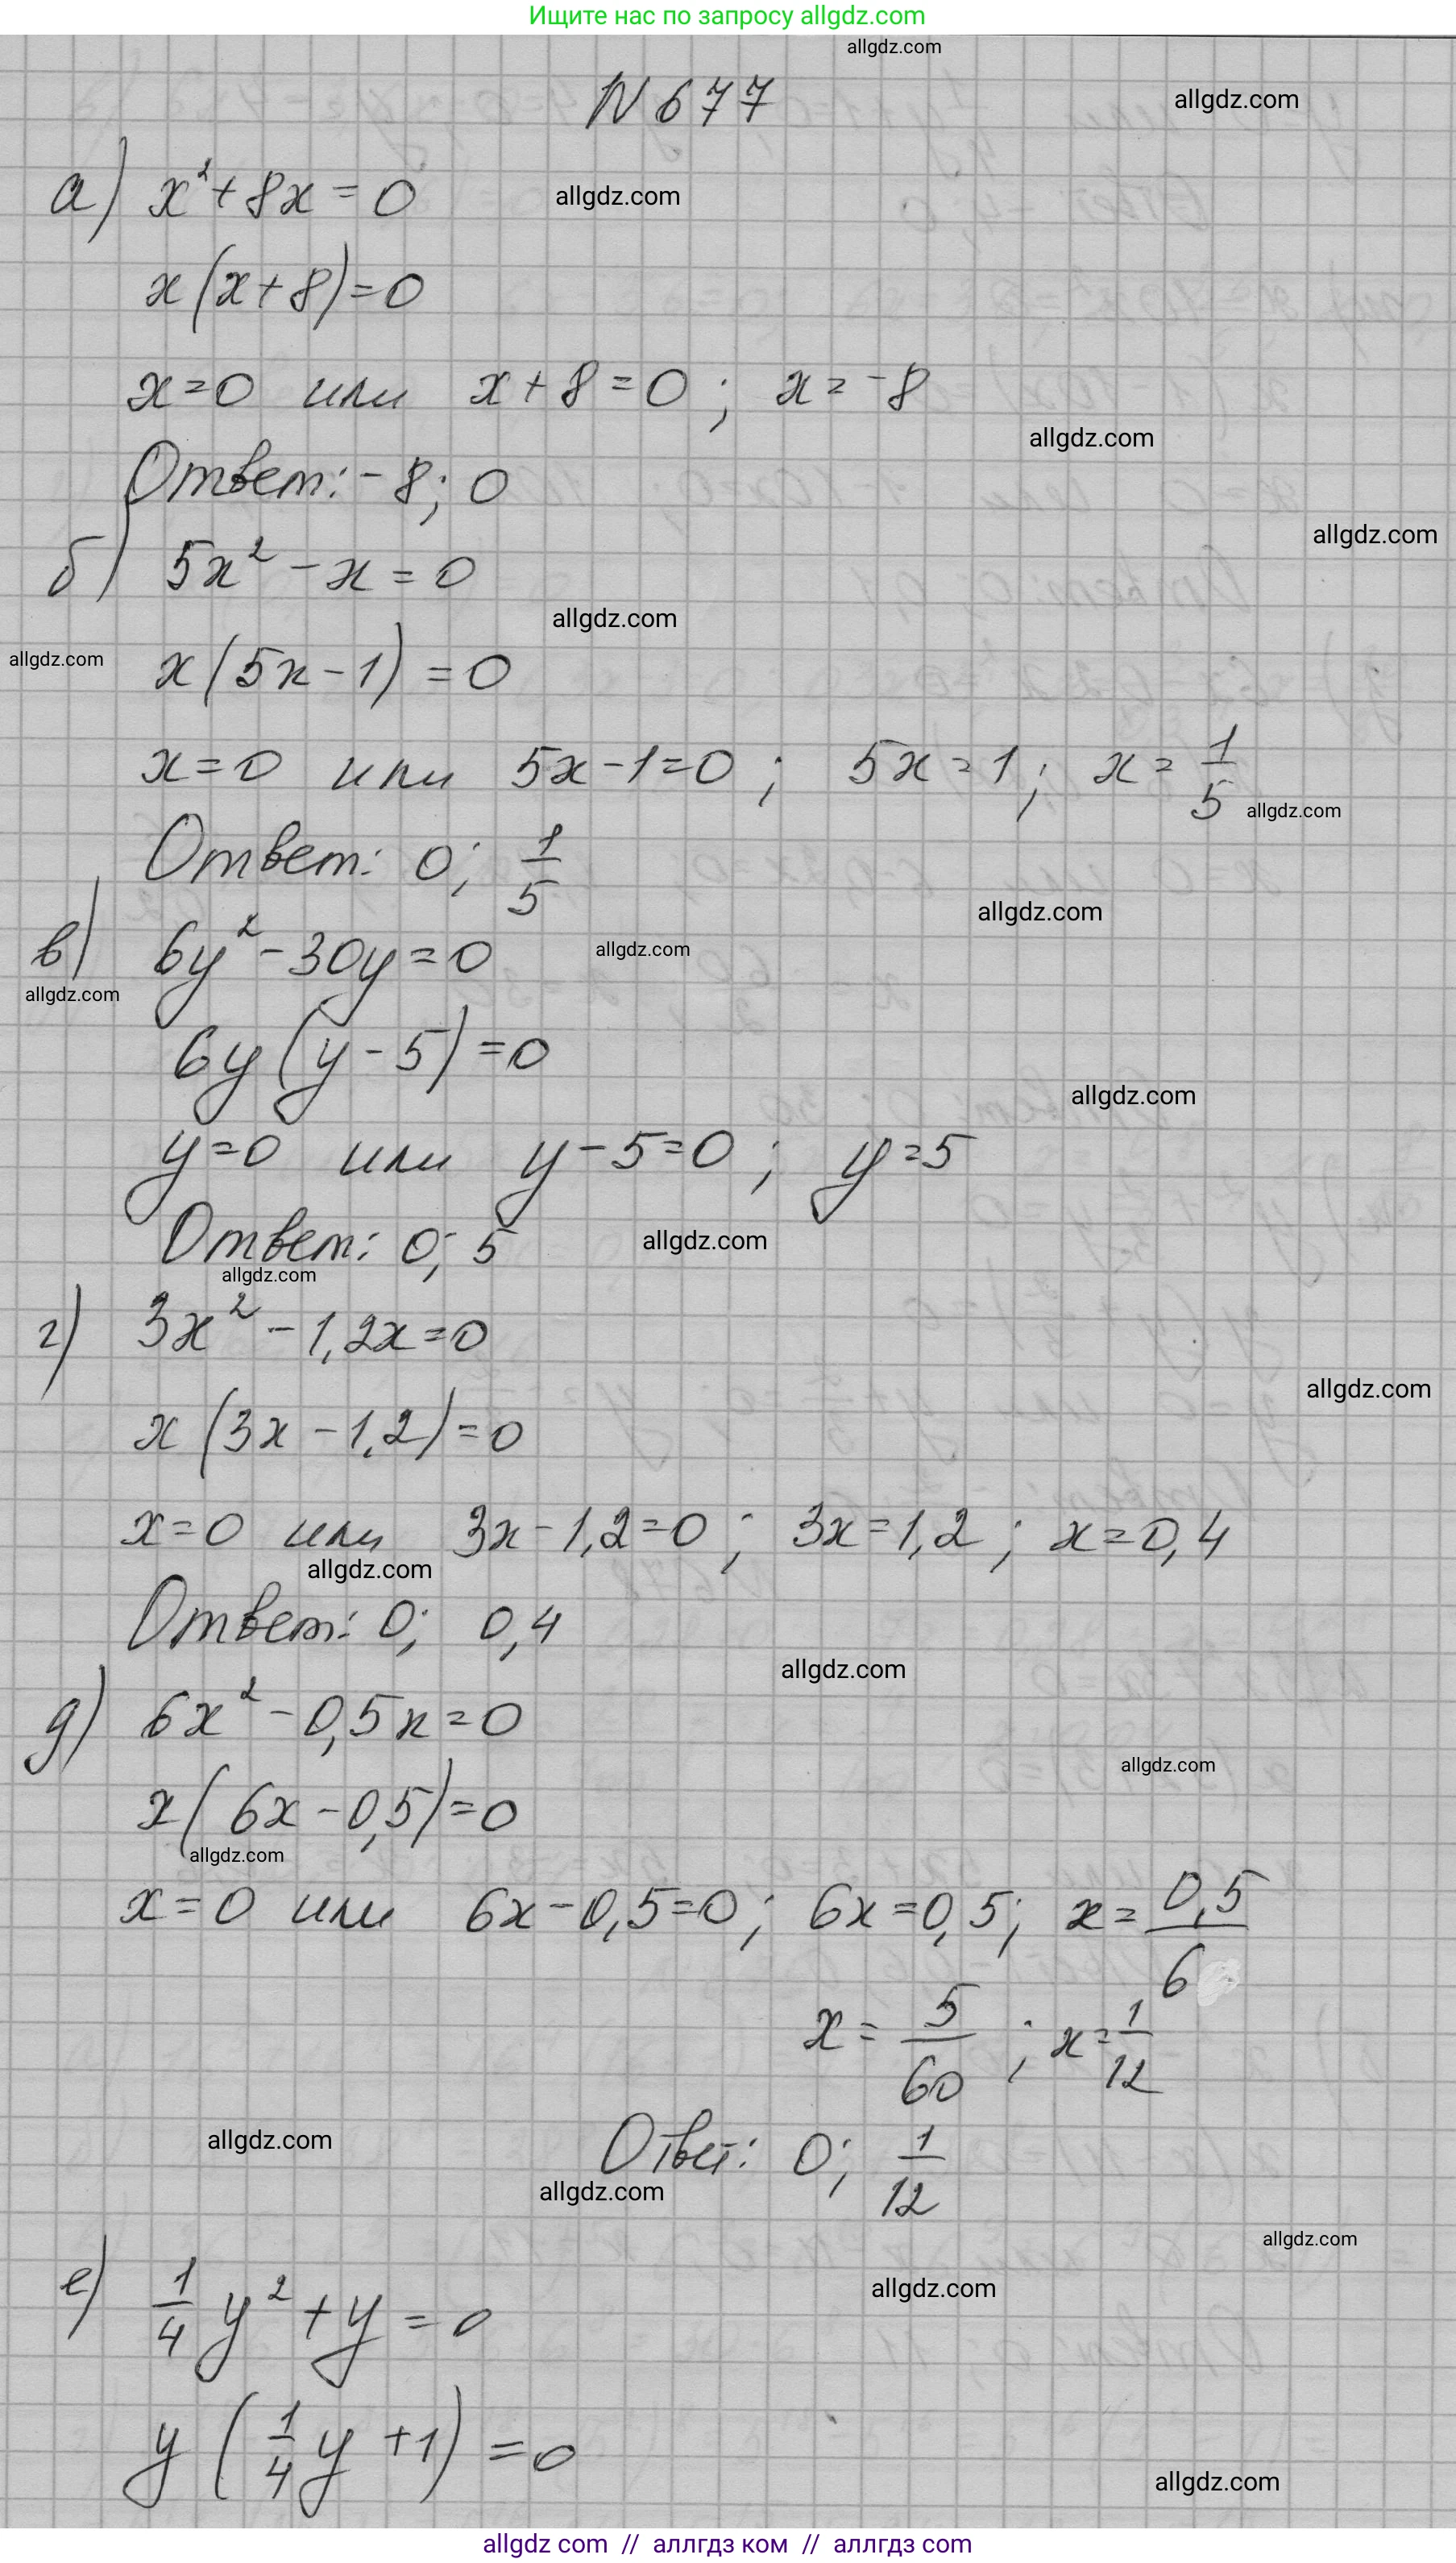 Ищите нас по запросу allgdz.com
allgdz.com
N 677
allgdz.com
а) x² + 8x = 0
allgdz.com
x(x + 8) = 0
x = 0 или x + 8 = 0; x = -8
allgdz.com
Ответ: -8; 0
allgdz.com
б) 5x² - x = 0
allgdz.com
allgdz.com
x(5x - 1) = 0
x = 0 или 5x - 1 = 0; 5x = 1; x = 1/5
allgdz.com
Ответ: 0; 1/5
allgdz.com
в) 6y² - 30y = 0
allgdz.com
allgdz.com
6y(y - 5) = 0
allgdz.com
y = 0 или y - 5 = 0; y = 5
Ответ: 0; 5
allgdz.com
allgdz.com
г) 3x² - 1,2x = 0
allgdz.com
x(3x - 1,2) = 0
x = 0 или 3x - 1,2 = 0; 3x = 1,2; x = 0,4
allgdz.com
Ответ: 0; 0,4
allgdz.com
д) 6x² - 0,5x = 0
allgdz.com
x(6x - 0,5) = 0
allgdz.com
x = 0 или 6x - 0,5 = 0; 6x = 0,5; x = 0,5/6
x = 5/60; x = 1/12
allgdz.com
Ответ: 0; 1/12
allgdz.com
allgdz.com
allgdz.com
е) 1/4 y² + y = 0
y(1/4 y + 1) = 0
allgdz.com
allgdz com // аллгдз ком // аллгдз com